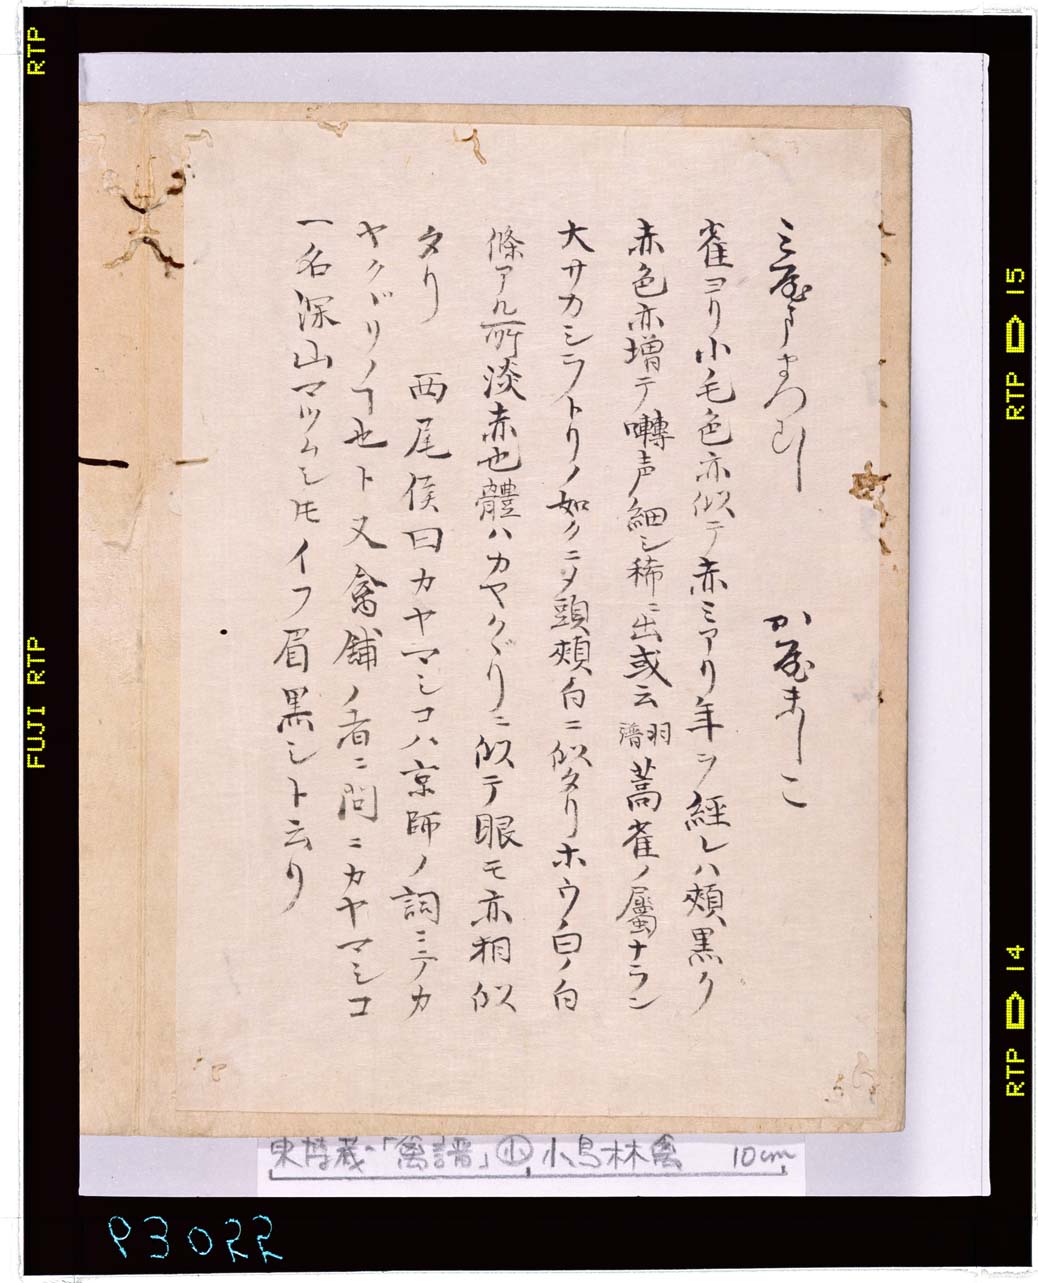 みやままつむし かやましこ
雀ヨリ小毛色亦似テ赤ミアリ年ヲ經レハ頰黒ク
赤色亦増テ囀声ノ細シ稀ニ出或云翻譜蒿雀ノ屬ナラン
大サカシラトリノ如クニメ頭頰白ニ似タリホウ白ノ白
條アル所淡赤也體ハカヤクヾリニ似テ眼モ亦相似
タリ 西尾侯曰カヤマシコハ京師ノ詞ニテカ
ヤクヾリノヿ也ト又禽舗ノ者ニ問ニカヤマシコ
一名深山マツムシ𪜈イフ眉黒シト云り
東博蔵・「禽譜」㊥ 小鳥林禽 10cm
P3022
RTP
FUJI RTP
RTP 15
RTP 14